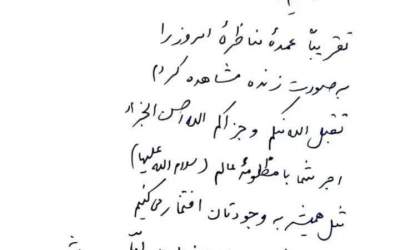 تقریباً عمدهٔ مناظرهٔ امروز را
به صورت زنده مشاهده کردم
تقبل الله منکم و جزاکم الله احسن الجزاء
اجر شما با مظلومهٔ عالم (سلام الله علیها)
مثل همیشه به وجودتان افتخار می‌کنیم